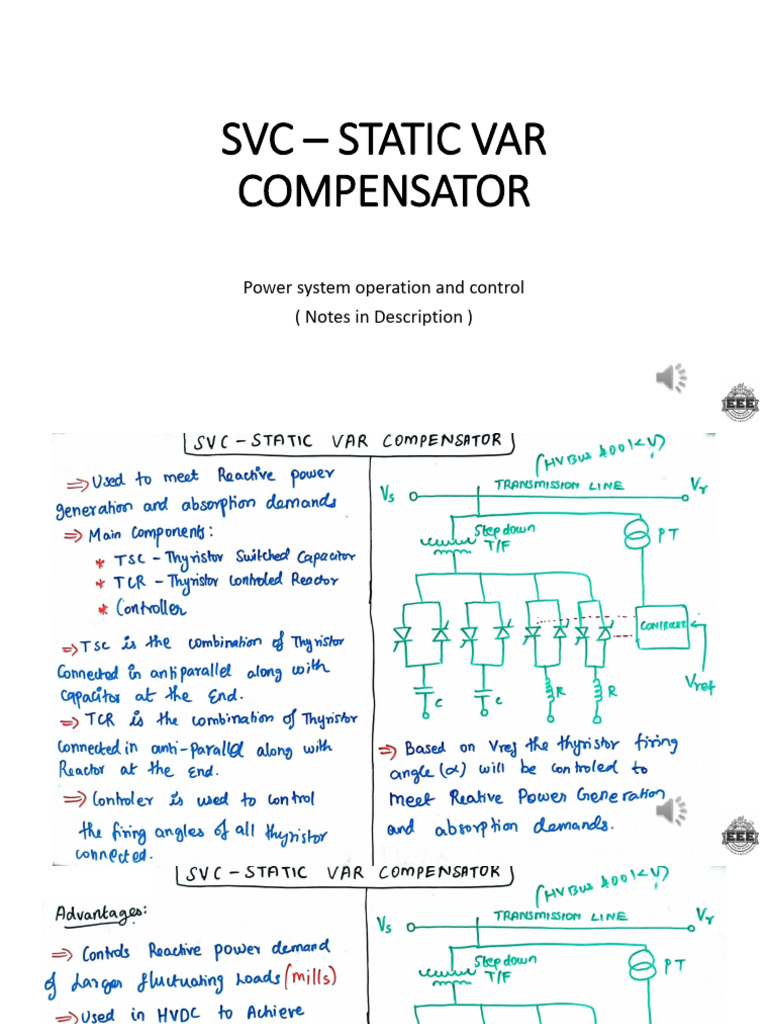 SVC – STATIC VAR
COMPENSATOR
Power system operation and control
( Notes in Description )
EEE
SVC - STATIC VAR COMPENSATOR
⇒ Used to meet Reactive power
generation and absorption demands
⇒ Main Components:
* TSC - Thyristor Switched Capacitor
* TCR - Thyristor Controled Reactor
* Controller
⇒ TSC is the combination of Thyristor
Connected in antiparallel along with
capacitor at the End.
⇒ TCR is the combination of Thyristor
Connected in anti-Parallel along with
Reactor at the End.
⇒ Controler is used to control
the firing angles of all thyristor
connected.
(HV Bus 400KV)
Vs
TRANSMISSION LINE
Vr
Stepdown
T/F
PT
CONTROLER
C
C
R
R
Vref
⇒ Based on Vref the thyristor firing
angle (α) will be controled to
meet Reative Power Generation
and absorption demands.
EEE
SVC - STATIC VAR COMPENSATOR
Advantages:
⇒ Controls Reactive power demand
of Larger fluctuating Loads (mills)
⇒ Used in HVDC to Achieve
(HV Bus 400KV)
Vs
TRANSMISSION LINE
Vr
Stepdown
T/F
PT